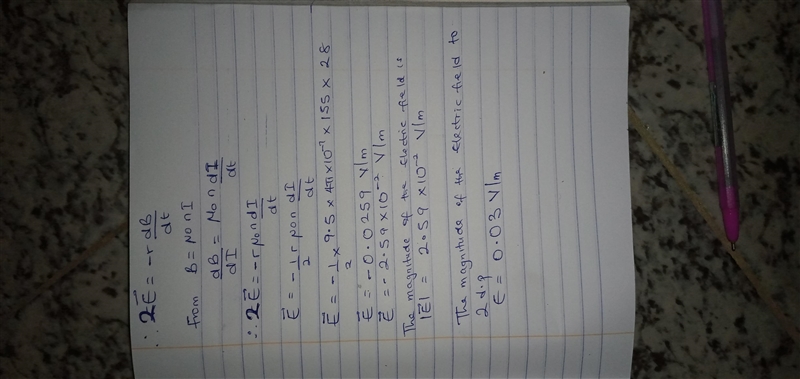 ∴ 2E⃗ = -r dB/dt
from B = μ0 n I
dB/dI = μ0 n dI/dt
∴ 2E⃗ = -r μ0 n dI/dt
E⃗ = -1/2 r μ0 n dI/dt
E⃗ = -1/2 × 9.5 × 4π × 10⁻⁷ × 155 × 28
E⃗ = -0.0259 V/m
E⃗ = -2.59 × 10⁻² V/m
The magnitude of the electric field is
|E⃗| = 2.59 × 10⁻² V/m
The magnitude of the electric field to
2 d.p
E = 0.03 V/m